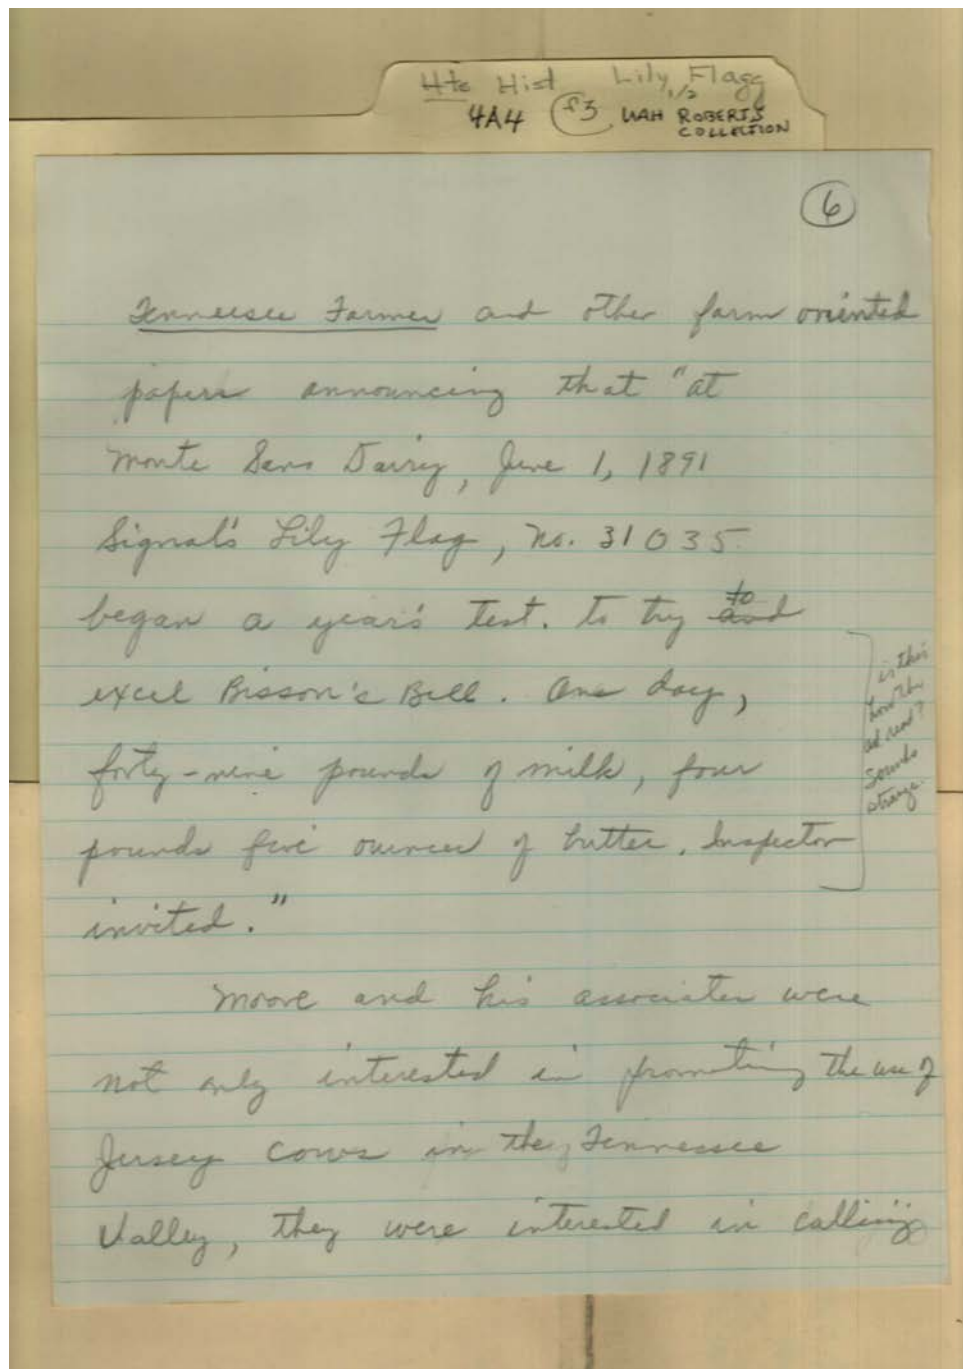 Hts Hist Lily Flagg
1/2
4A4 f3 UAH ROBERTS
COLLECTION
6
Tennessee Farmer and other farm oriented
papers announcing that "at
Monte Sano Dairy, June 1, 1891
Signal's Lily Flag, No. 31035
began a year's test. to try and
to
excel Bisson's Bell. One day,
forty-nine pounds of milk, four
pounds five ounces of butter. Inspector
invited."
is this
how the
ad read?
Sounds
strange.
Moore and his associates were
not only interested in promoting the use of
Jersey cows in the Tennessee
Valley, they were interested in calling